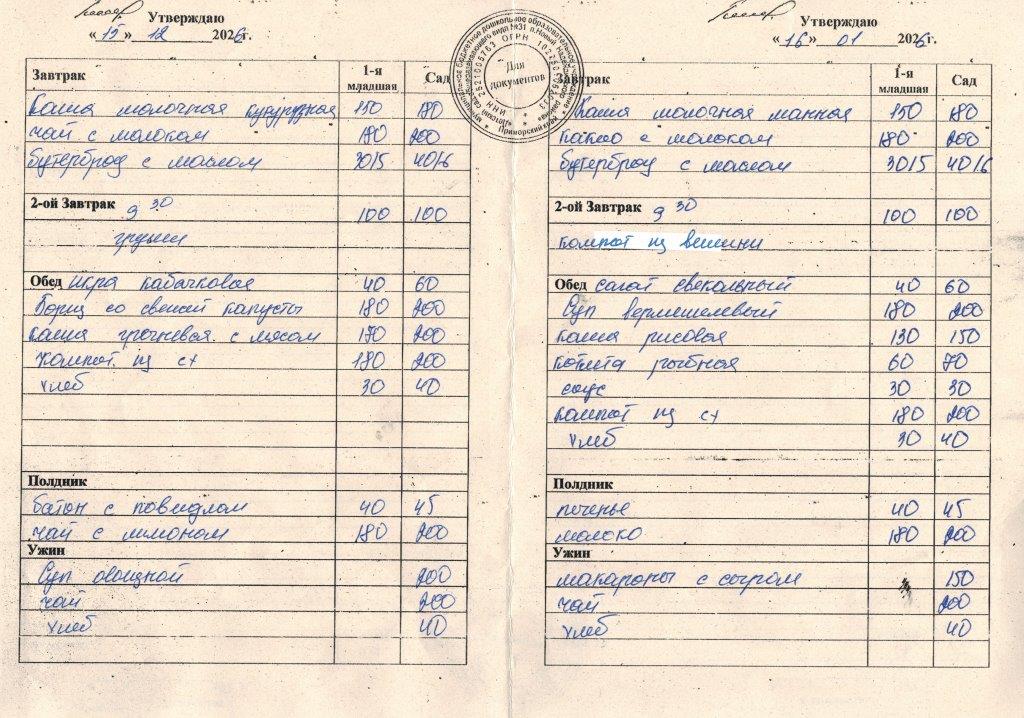 Утверждаю
« 15 » 12 2026г.
Завтрак 1-я младшая Сад
Каша молочная кукурузная 150 180
чай с молоком 180 200
бутерброд с маслом 30/5 40/6
2-ой Завтрак 9 30 100 100
груши
Обед икра кабачковая 40 60
Борщ со свежей капусты 180 200
каша гречневая с мясом 170 200
компот из сх 180 200
хлеб 30 40
Полдник
батон с повидлом 40 45
чай с лимоном 180 200
Ужин
Суп овощной 200
чай 200
хлеб 40
Для документов
Утверждаю
« 16 » 01 2026г.
Завтрак 1-я младшая Сад
Каша молочная манная 150 180
какао с молоком 180 200
бутерброд с маслом 30/5 40/6
2-ой Завтрак 9 30 100 100
компот из вешини
Обед салат свекольный 40 60
Суп вермешелевый 180 200
каша рисовая 130 150
котлета рыбная 60 70
соус 30 30
компот из сх 180 200
хлеб 30 40
Полдник
печенье 40 45
молоко 180 200
Ужин
макароны с сыром 150
чай 200
хлеб 40